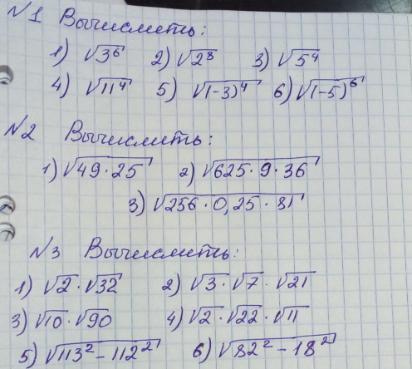 №1 Вычислить:
1) √3⁶ 2) √2⁸ 3) √5⁴
4) √11⁴ 5) √(-3)⁴ 6) √(-5)⁶
№2 Вычислить:
1) √49·25 2) √625·9·36
3) √256·0,25·81
№3 Вычислить:
1) √2·√32 2) √3·√7·√21
3) √10·√90 4) √2·√22·√11
5) √113²-112² 6) √82²-18²